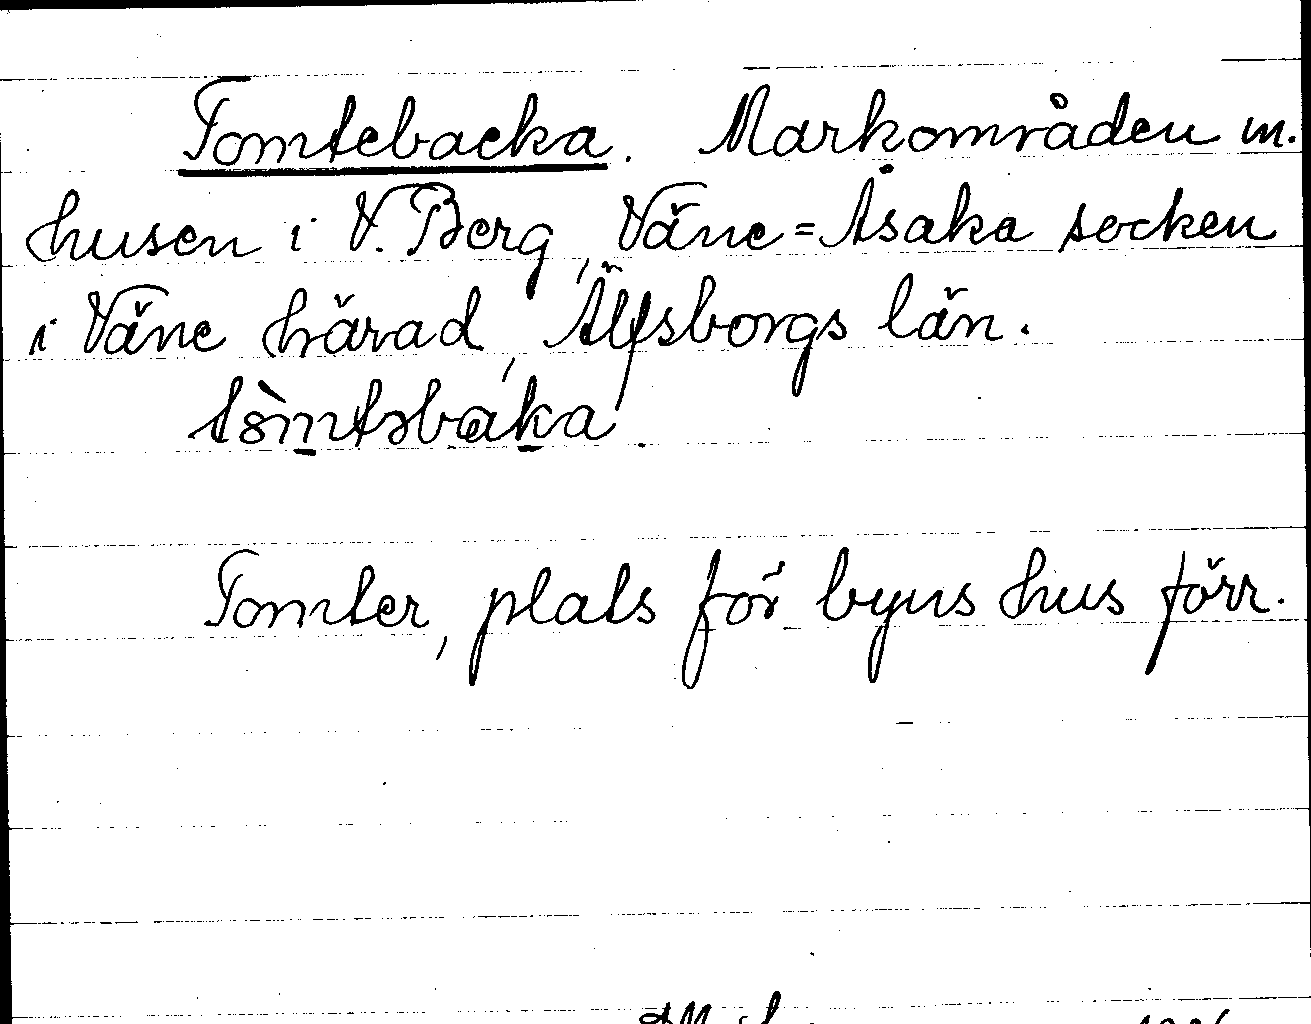 Tomtebacka. Markområden m.
husen i V. Berg, Väne=Åsaka socken
i Väne härad, Älfsborgs län.
tòmtəbaka.
Tomter, plats för byns hus förr.